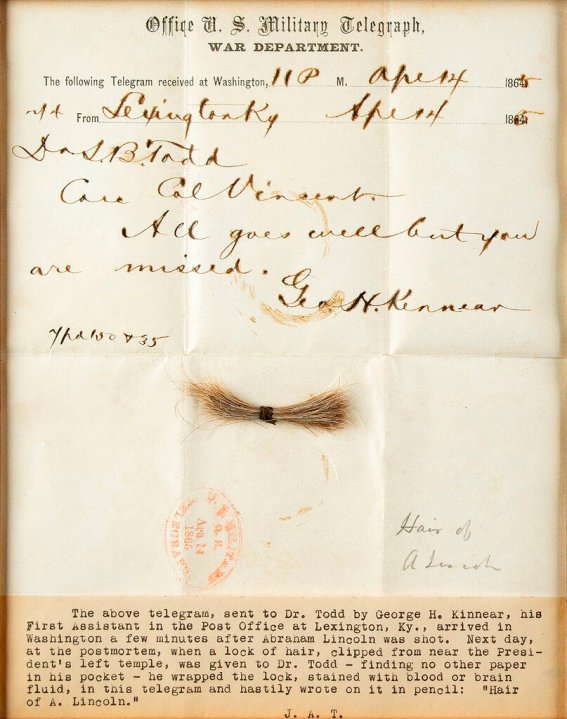 Office U. S. Military Telegraph,
WAR DEPARTMENT.
The following Telegram received at Washington, 11 P M. Apl 14 1865
From Lexington Ky Apl 14 1865
Dr L. B. Todd
Care Col Vincent.
All goes well but you
are missed.
Geo H. Kinnear
7 pd 150 & 35
U. S. MILITARY
Apr 14
1865
TELEGRAPH
Hair of
A Lincoln
The above telegram, sent to Dr. Todd by George H. Kinnear, his
First Assistant in the Post Office at Lexington, Ky., arrived in
Washington a few minutes after Abraham Lincoln was shot. Next day,
at the postmortem, when a lock of hair, clipped from near the Presi-
dent's left temple, was given to Dr. Todd - finding no other paper
in his pocket - he wrapped the lock, stained with blood or brain
fluid, in this telegram and hastily wrote on it in pencil: "Hair
of A. Lincoln."
J. A. T.